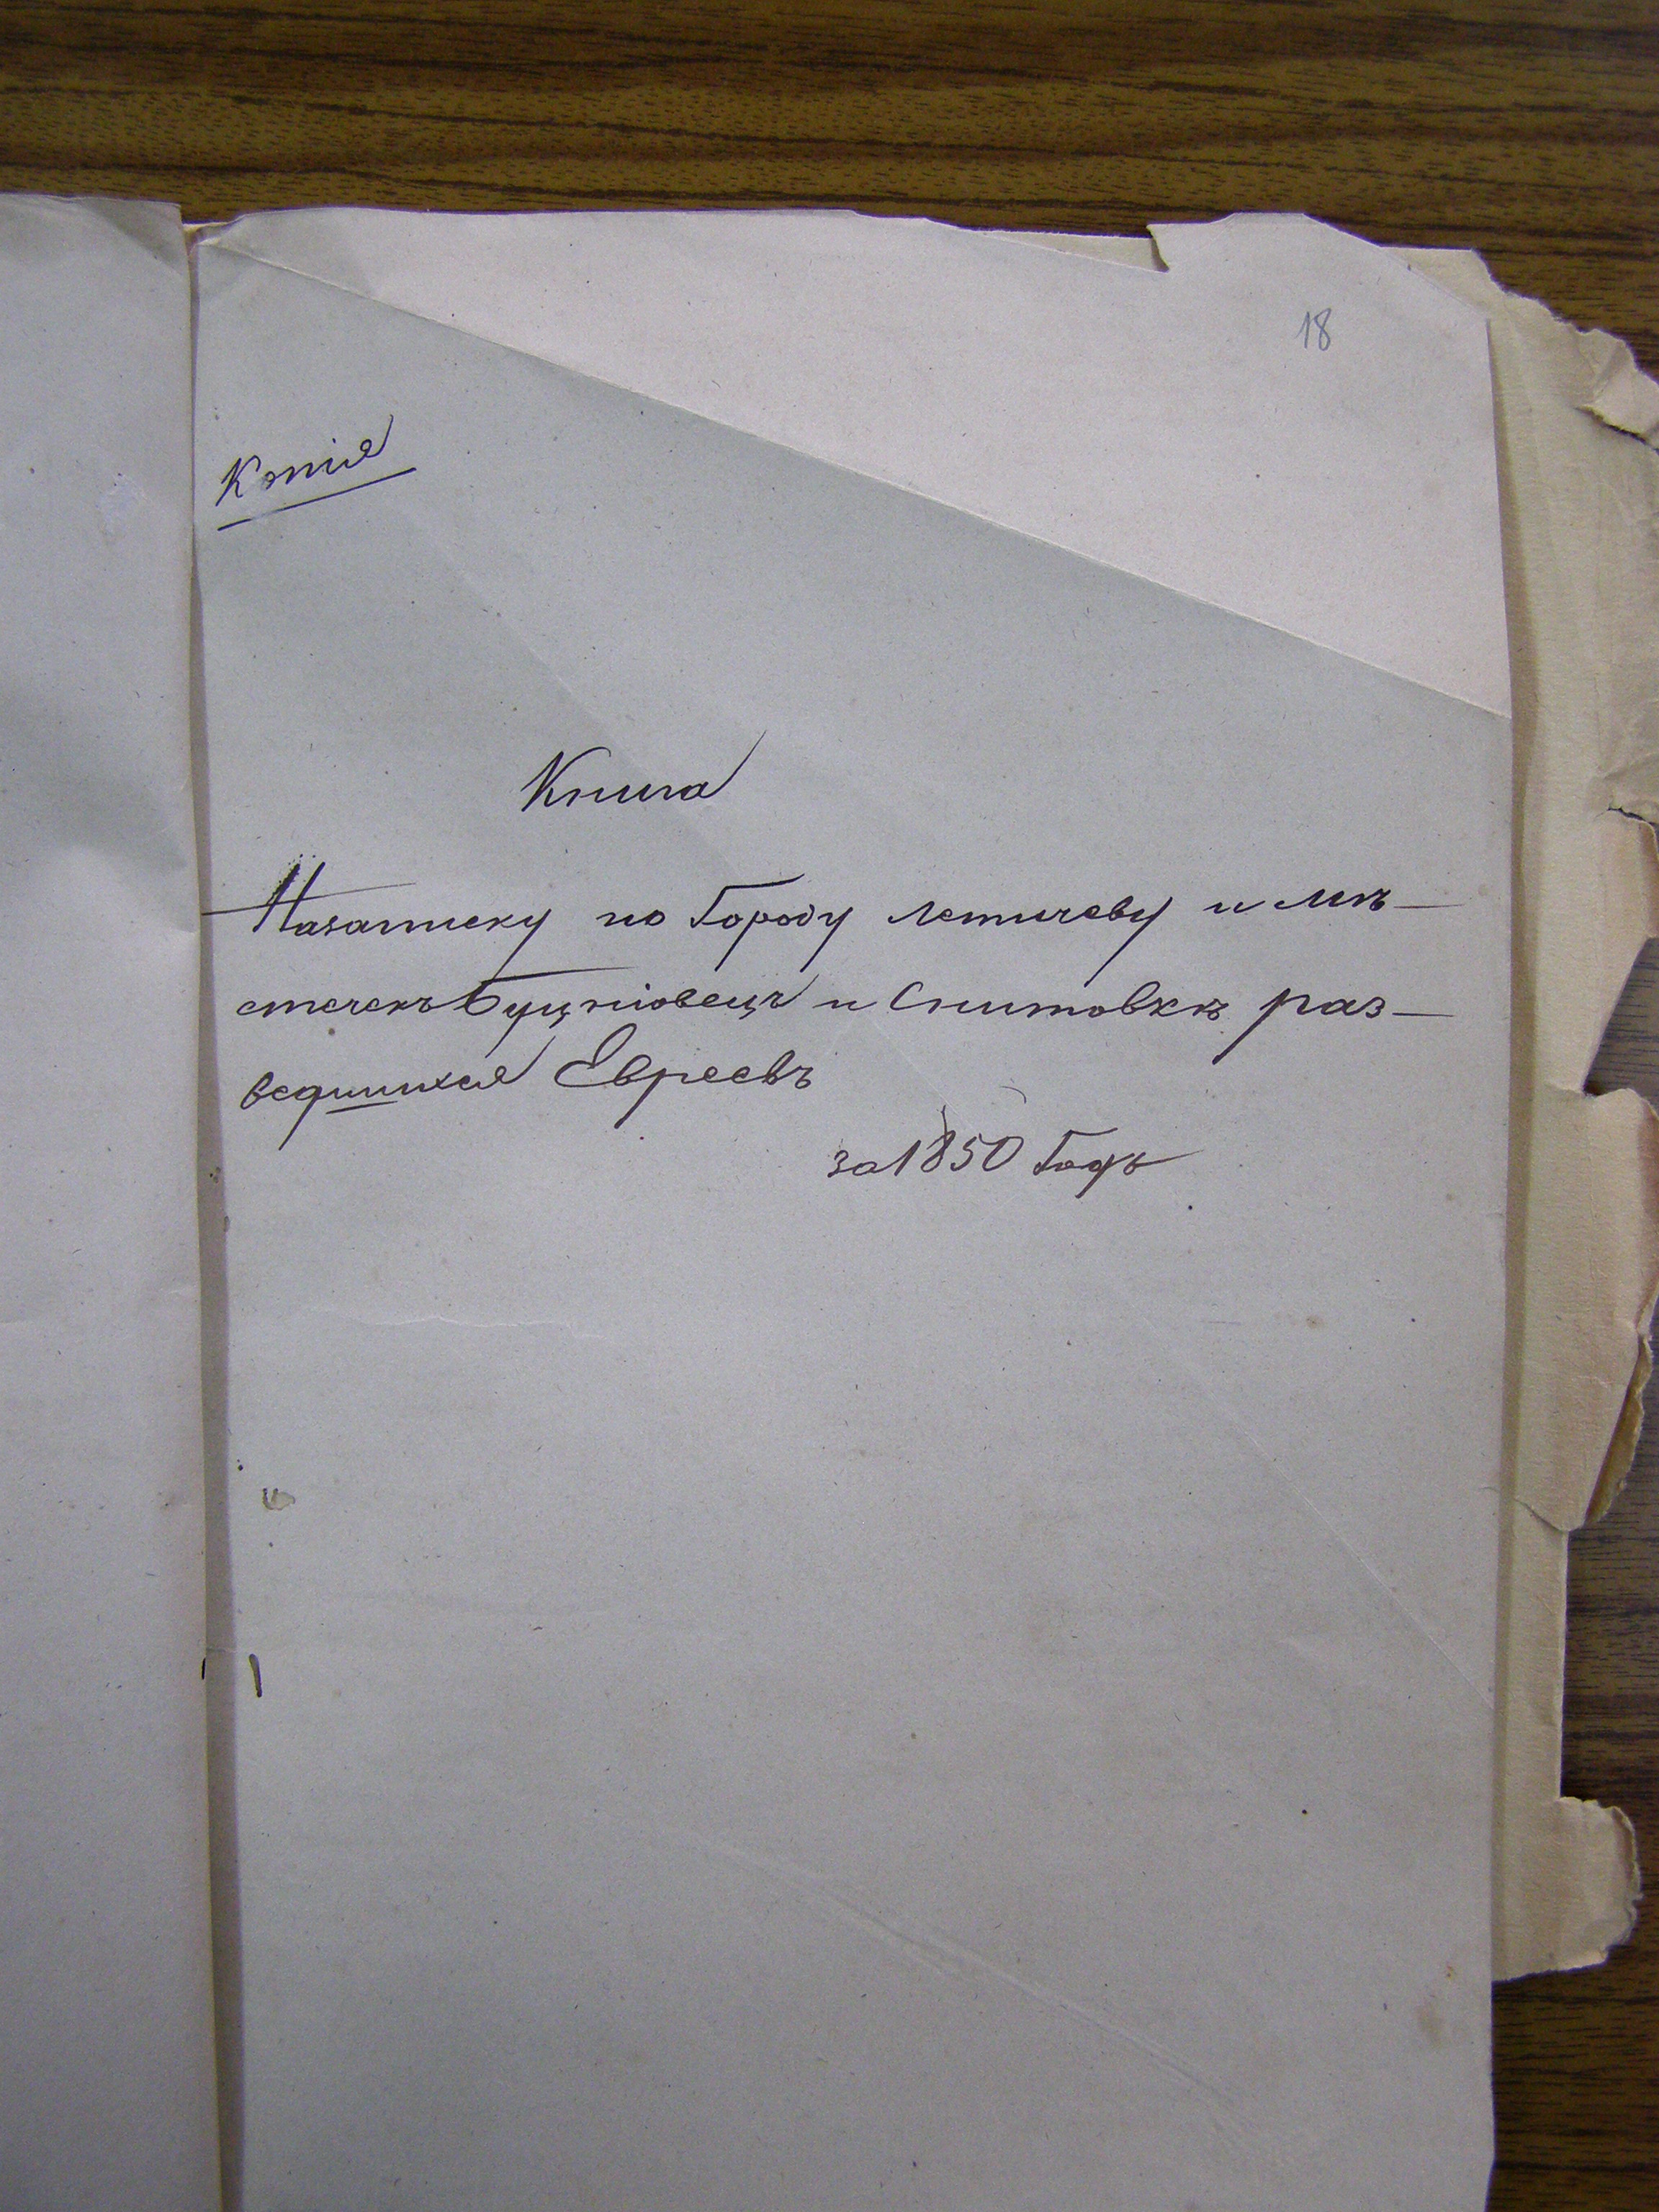 18
Копія
Книга
Назаписку по Городу Летичеву и мѣ-
стечекъ Буцніовецъ и Снитовкѣ раз-
ведшихся Евреевъ
за 1850 Годъ